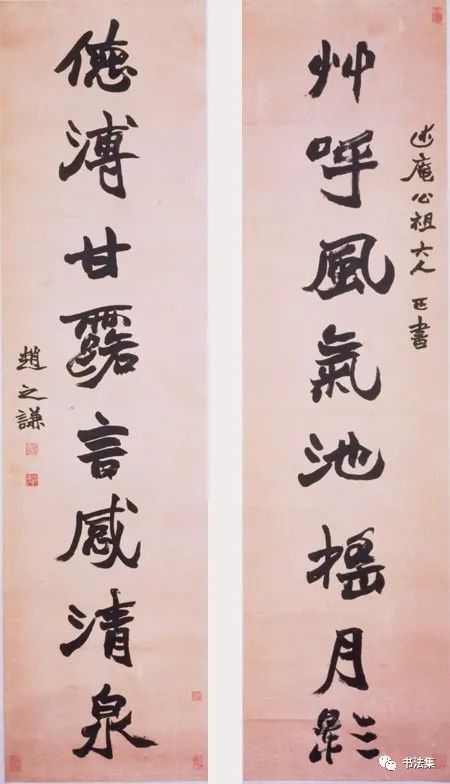 述庵公祖大人 正書
艸呼風氣池搖月影
德溥甘露言感清泉
趙之謙
书法集